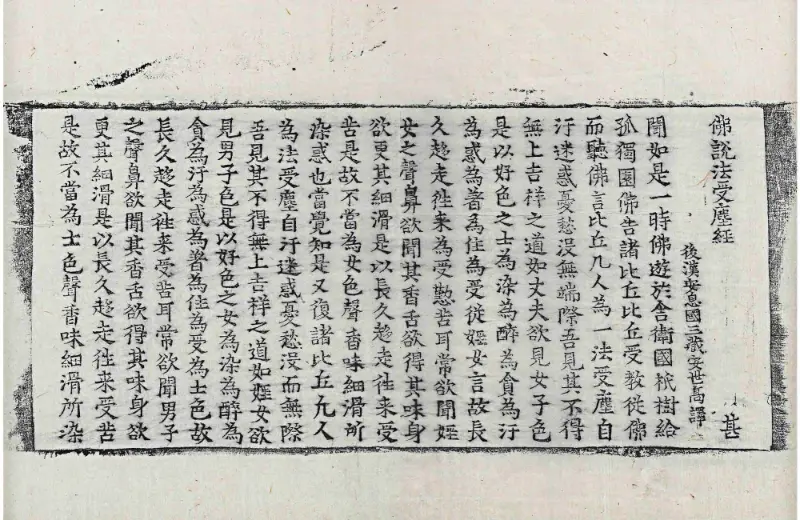 佛說法受塵經
後漢安息國三藏安世高譯 甚
聞如是一時佛遊於舍衛國祇樹給
孤獨園佛告諸比丘比丘受教從佛
而聽佛言比丘凡人為一法受塵自
汙迷惑憂愁沒無端際吾見其不得
無上吉祥之道如丈夫欲見女子色
是以好色之士為染為醉為貪為汙
為惑為著為住為受從婬女言故長
久趍走徃来為受懃苦耳常欲聞婬
女之聲鼻欲聞其香舌欲得其味身
欲更其細滑是以長久趍走徃来受
苦是故不當為女色聲香味細滑所
染惑也當覺知是又復諸比丘凡人
為法受塵自汙迷惑憂愁沒而無際
吾見其不得無上吉祥之道如婬女欲
見男子色是以好色之女為染為醉為
貪為汙為惑為著為住為受為士色故
長久趍走徃来受苦耳常欲聞男子
之聲鼻欲聞其香舌欲得其味身欲
更其細滑是以長久趍走徃来受苦
是故不當為士色聲香味細滑所染